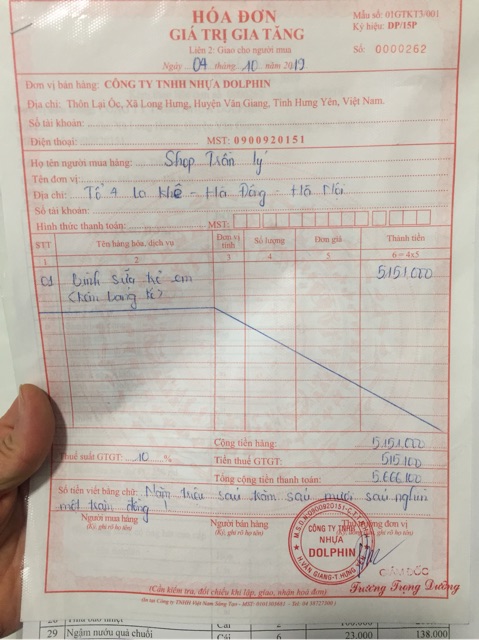 HÓA ĐƠN
GIÁ TRỊ GIA TĂNG
Liên 2: Giao cho người mua
Ngày 04 tháng 10 năm 2019
Mẫu số: 01GTKT3/001
Ký hiệu: DP/15P
Số: 0000262
Đơn vị bán hàng: CÔNG TY TNHH NHỰA DOLPHIN
Địa chỉ: Thôn Lại Ốc, Xã Long Hưng, Huyện Văn Giang, Tỉnh Hưng Yên, Việt Nam.
Số tài khoản:
Điện thoại: MST: 0900920151
Họ tên người mua hàng: Shop Trần Lý
Tên đơn vị:
Địa chỉ: Tổ 4 La Khê - Hà Đông - Hà Nội
Số tài khoản:
Hình thức thanh toán: MST:
STT Tên hàng hóa, dịch vụ Đơn vị tính Số lượng Đơn giá Thành tiền
1 2 3 4 5 6 = 4x5
01 Bình sữa trẻ em 5.151.000
Cộng tiền hàng: 5.151.000
Thuế suất GTGT: 10 % Tiền thuế GTGT: 515.100
Tổng cộng tiền thanh toán: 5.666.100
Số tiền viết bằng chữ: Năm triệu sáu trăm sáu mươi sáu nghìn
một trăm đồng!
Người mua hàng Người bán hàng Thủ trưởng đơn vị
(Ký, ghi rõ họ tên) (Ký, ghi rõ họ tên)
M.S.D.N:0900920151-C.T.
CÔNG TY TNHH
NHỰA
DOLPHIN
H.VĂN GIANG-T.HƯNG YÊN
GIÁM ĐỐC
Trương Trọng Dưỡng
(Cần kiểm tra, đối chiếu khi lập, giao, nhận hoá đơn)
29 Ngậm nướu quả chuối Cái 6 23.000 138.000